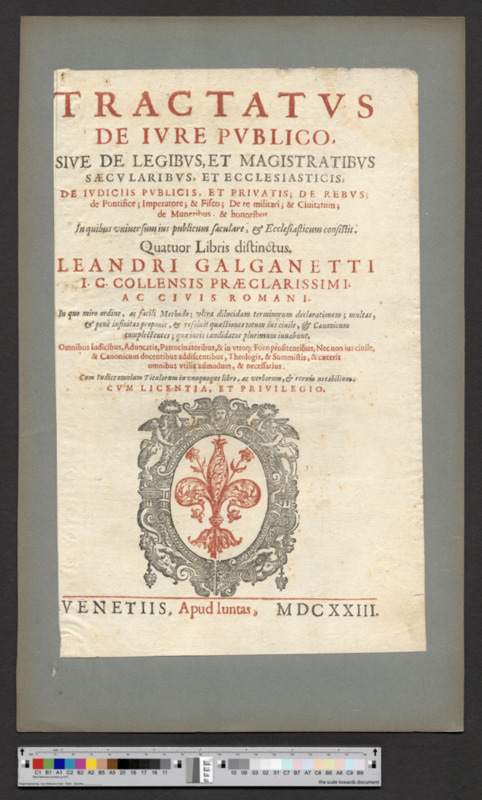 TRACTATVS
DE IVRE PVBLICO,
SIVE DE LEGIBVS, ET MAGISTRATIBVS
SÆCVLARIBVS, ET ECCLESIASTICIS,
DE IVDICIIS PVBLICIS, ET PRIVATIS; DE REBVS;
de Pontifice; Imperatore; & Fisco; De re militari; & Ciuitatum;
de Muneribus, & honoribus
In quibus vniuersum ius publicum sæculare, & Ecclesiasticum consistit.
Quatuor Libris distinctus.
LEANDRI GALGANETTI
I. C. COLLENSIS PRÆCLARISSIMI.
AC CIVIS ROMANI.
In quo miro ordine, ac facili Methodo; vltra dilucidam terminorum declarationem; multas,
& penè infinitas proponit, & resoluit quæstiones totum ius ciuile, & Canonicum
complectentes; quæ iuris candidatos plurimum iuuabunt.
Omnibus Iudicibus, Aduocatis, Patrocinatoribus, & in vtroq; Foro profitentibus, Nec non ius ciuile,
& Canonicum docentibus addiscentibus, Theologis, & Summistis, & cæteris
omnibus vtilis admodum, & necessarius.
Cum Indice omnium Titulorum in vnoquoque libro, ac verborum, & rerum notabilium.
CVM LICENTIA, ET PRIVILEGIO.
VENETIIS, Apud Iuntas, MDCXXIII.
C1 B1 A1 C2 B2 A2 B5 A5 20 18 17 16 11
10 09 03 02 01 C7 B7 A7 C8 B8 A8 C9 B9
the scale towards document